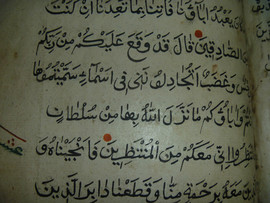 يَعْبُدُ اٰبَاؤُنَا فَأْتِنَا بِمَا تَعِدُنَا اِنْ كُنْتَ
الصَّادِقِينَ قَالَ قَدْ وَقَعَ عَلَيْكُمْ مِنْ رَبِّكُمْ
وَغَضَبٌ اَتُجَادِلُونَنِى فِى اَسْمَاءٍ سَمَّيْتُمُوهَا
وَاٰبَاؤُكُمْ مَا نَزَّلَ اللّٰهُ بِهَا مِنْ سُلْطَانٍ
اِنِّى مَعَكُمْ مِنَ الْمُنْتَظِرِينَ فَاَنْجَيْنَاهُ وَ
مَعَهُ بِرَحْمَةٍ مِنَّا وَقَطَعْنَا دَابِرَ الَّذِينَ